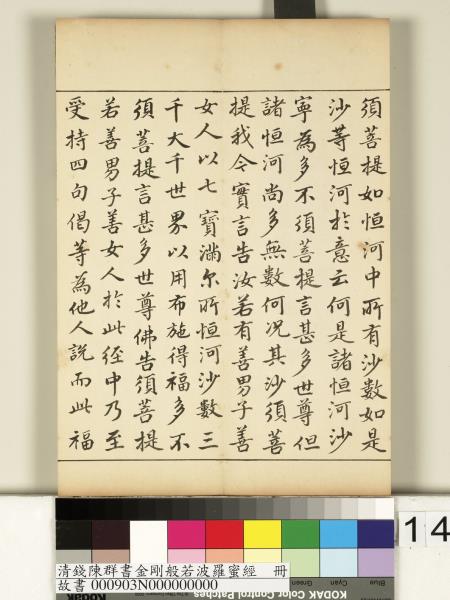 須菩提如恒河中所有沙數如是
沙等恒河於意云何是諸恒河沙
寧為多不須菩提言甚多世尊但
諸恒河尚多無數何況其沙須菩
提我今實言告汝若有善男子善
女人以七寶滿尔所恒河沙數三
千大千世界以用布施得福多不
須菩提言甚多世尊佛告須菩提
若善男子善女人於此經中乃至
受持四句偈等為他人說而此福
14
清錢陳群書金剛般若波羅蜜經 冊
故書 000903N000000000
Blue
Cyan
Green
KODAK Color Control Patches